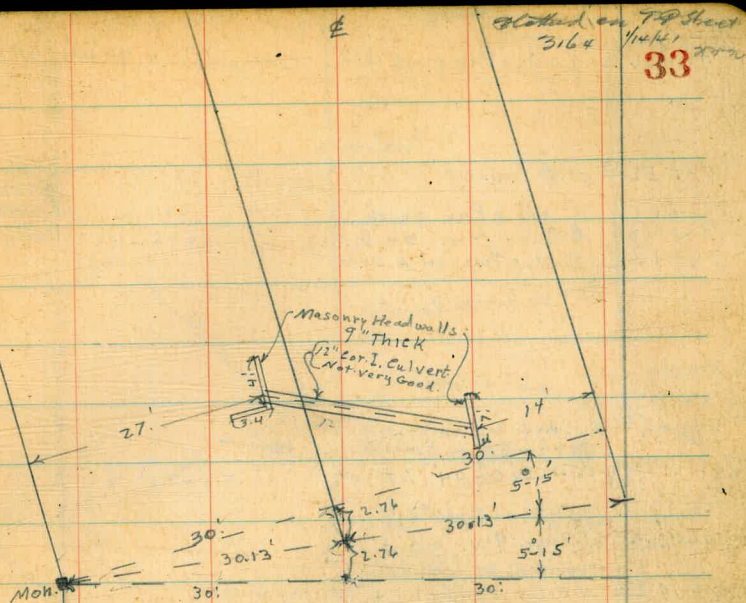 ℄
Plotted on P&P Sheet
3164 1/14/41
33
Masonry Headwalls
9" Thick
12" Cor. I. Culvert
Not very Good.
3.4
12
27'
14'
30'
5°-15'
2.76
30.13'
30'
30.13'
2.76
5°-15'
Mon.
30'
30'